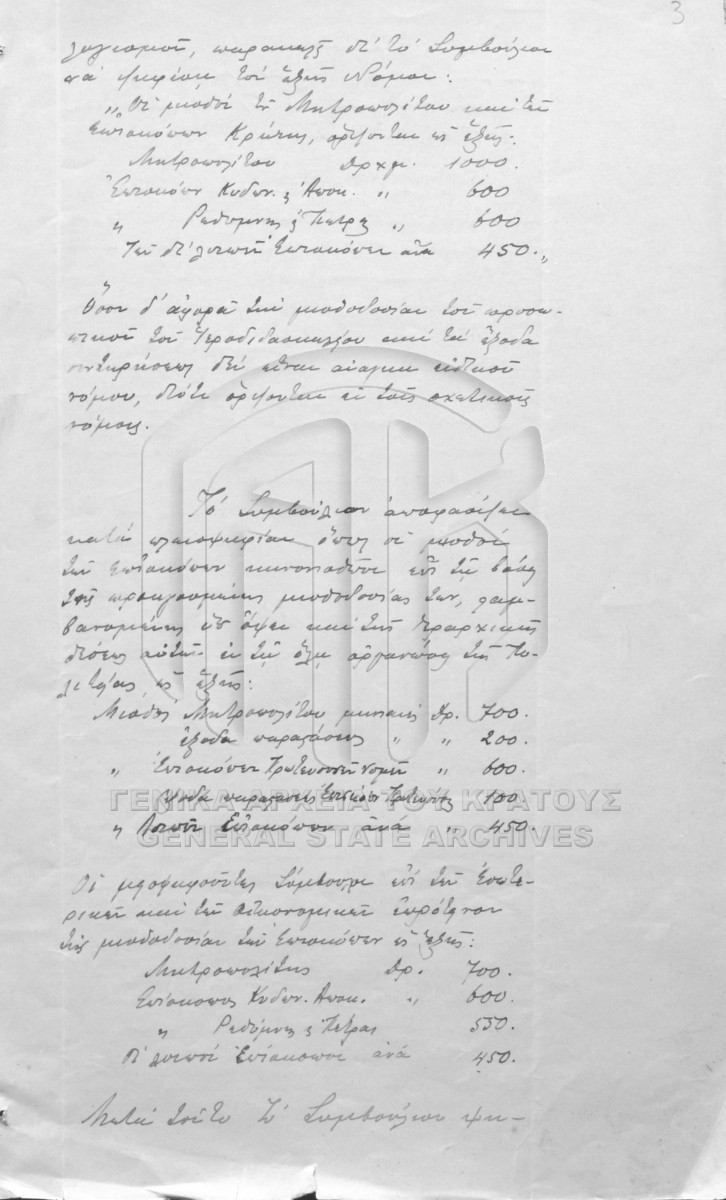 3
λογισμοῦ, παρακαλῶ δὲ τὸ Συμβούλιον
νὰ ψηφίσῃ τὸν ἑξῆς Νόμον:
„Οἱ μισθοὶ τοῦ Μητροπολίτου καὶ τῶν
Ἐπισκόπων Κρήτης, ὁρίζονται ὡς ἑξῆς:
Μητροπολίτου Δρχμ. 1000.
Ἐπισκόπων Κυδων. & Ἀποκ. „ 600
„ Ρεθύμνης & Πέτρας „ 600
Τῶν δὲ λοιπῶν Ἐπισκόπων ἀνὰ 450.„
Ὅσον δ' ἀφορᾷ τὴν μισθοδοσίαν τοῦ προσω-
πικοῦ τοῦ Ἱεροδιδασκαλείου καὶ τὰ ἔξοδα
συντηρήσεως δὲν εἶναι ἀνάγκη εἰδικοῦ
νόμου, διότι ὁρίζονται ἐν τοῖς σχετικοῖς
νόμοις.
Τὸ Συμβούλιον ἀποφασίζει
κατὰ πλειοψηφίαν ὅπως οἱ μισθοὶ
τῶν Ἐπισκόπων κανονισθῶσι ἐπὶ τῇ βάσει
τῆς προηγουμένης μισθοδοσίας των, λαμ-
βανομένης ὑπ' ὄψει καὶ τῆς ἱεραρχικῆς
θέσεως αὐτῶν ἐν τῇ ὅλῃ ὀργανώσει τῆς Πο-
λιτείας, ὡς ἑξῆς:
Μισθὸς Μητροπολίτου μηνιαῖος Δρ. 700.
ἔξοδα παραστάσεως „ „ 200.
„ Ἐπισκόπων Πρωτευουσῶν Νομῶν „ 600.
Ἔξοδα παραστάσεως Ἐπισκόπου Πρωτευούσης 100
„ Λοιπῶν Ἐπισκόπων ἀνὰ „ 450.
ΓΕΝΙΚΑ ΑΡΧΕΙΑ ΤΟΥ ΚΡΑΤΟΥΣ
GENERAL STATE ARCHIVES
Οἱ μειοψηφοῦντες Σύμβουλοι ἐπὶ τῶν Ἐσωτε-
ρικῶν καὶ τῶν Οἰκονομικῶν ἐπρότεινον
τὴν μισθοδοσίαν τῶν Ἐπισκόπων ὡς ἑξῆς:
Μητροπολίτης Δρ. 700.
Ἐπίσκοπος Κυδων. Ἀποκ. „ 600.
„ Ρεθύμνης & Πέτρας 550.
Οἱ λοιποὶ Ἐπίσκοποι ἀνὰ 450.
Μετὰ τοῦτο τὸ Συμβούλιον ψη-